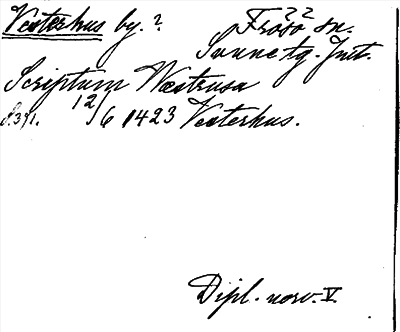 Vesterhus by. ?
Frösö sn. ??
Sunne tg. Jmt.
Scriptum Wæstrusa
S. 391. 12/6 1423 Vesterhus.
Dipl. norv. V.